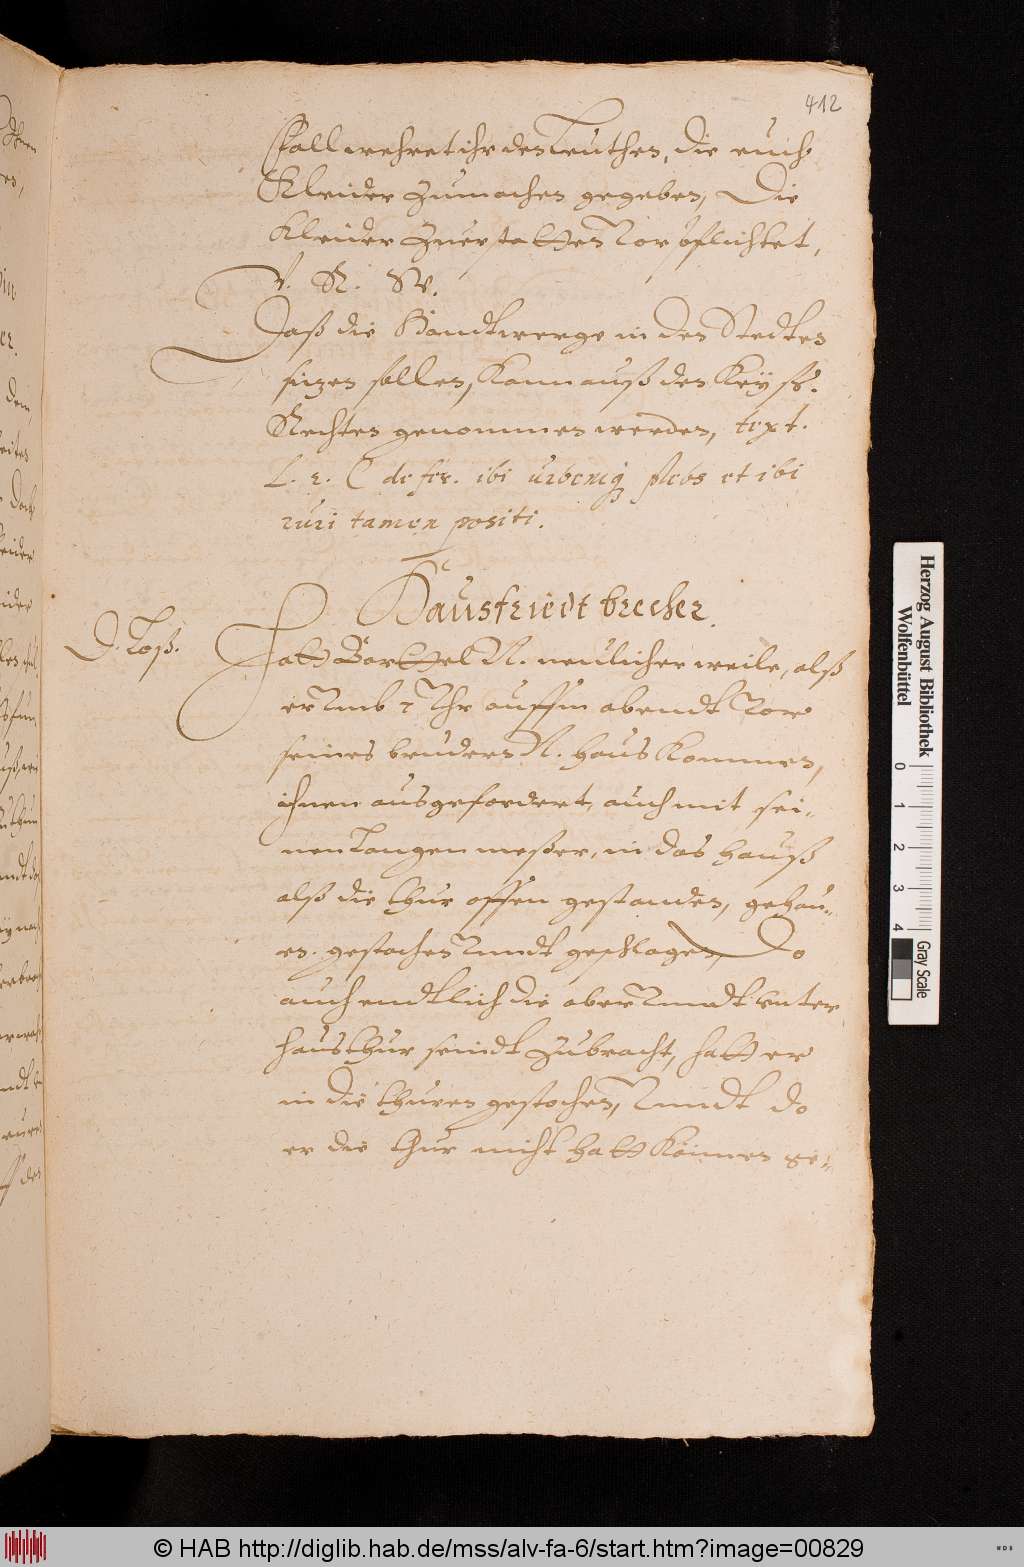 412
Fall wehret ihr den Leuthen, die euch
Kleider zumachen gegeben, Die
Kleider zuerstatten vorpflichtet,
V. R. W.
Daß die Handtwerge in den Stedten
sitzen sollen, Kann auß den Keyß.
Rechten genommen werden, text.
L. 2. C de ibi plebs et ibi
ruri tamen positi.
Hausfriedt brecher.
D. Loß.
Hatt Barttel N. neulicher weile, alß
er umb 7 Uhr auffm abendt vor
seines bruders N. haus kommen,
ihnen ausgefordert, auch mit sei-
nen langen meßer, in das hauß
alß die thur offen gestanden, gehau-
en. gestochen unndt geschlagen, Do
auch endtlich die ober unndt unter
hausthur seindt zubracht, hatt er
in die thuren gestochen, unndt do
er die thur nicht hatt können ge-
Herzog August Bibliothek
Wolfenbüttel
0 1 2 3 4
Gray Scale
© HAB http://diglib.hab.de/mss/alv-fa-6/start.htm?image=00829